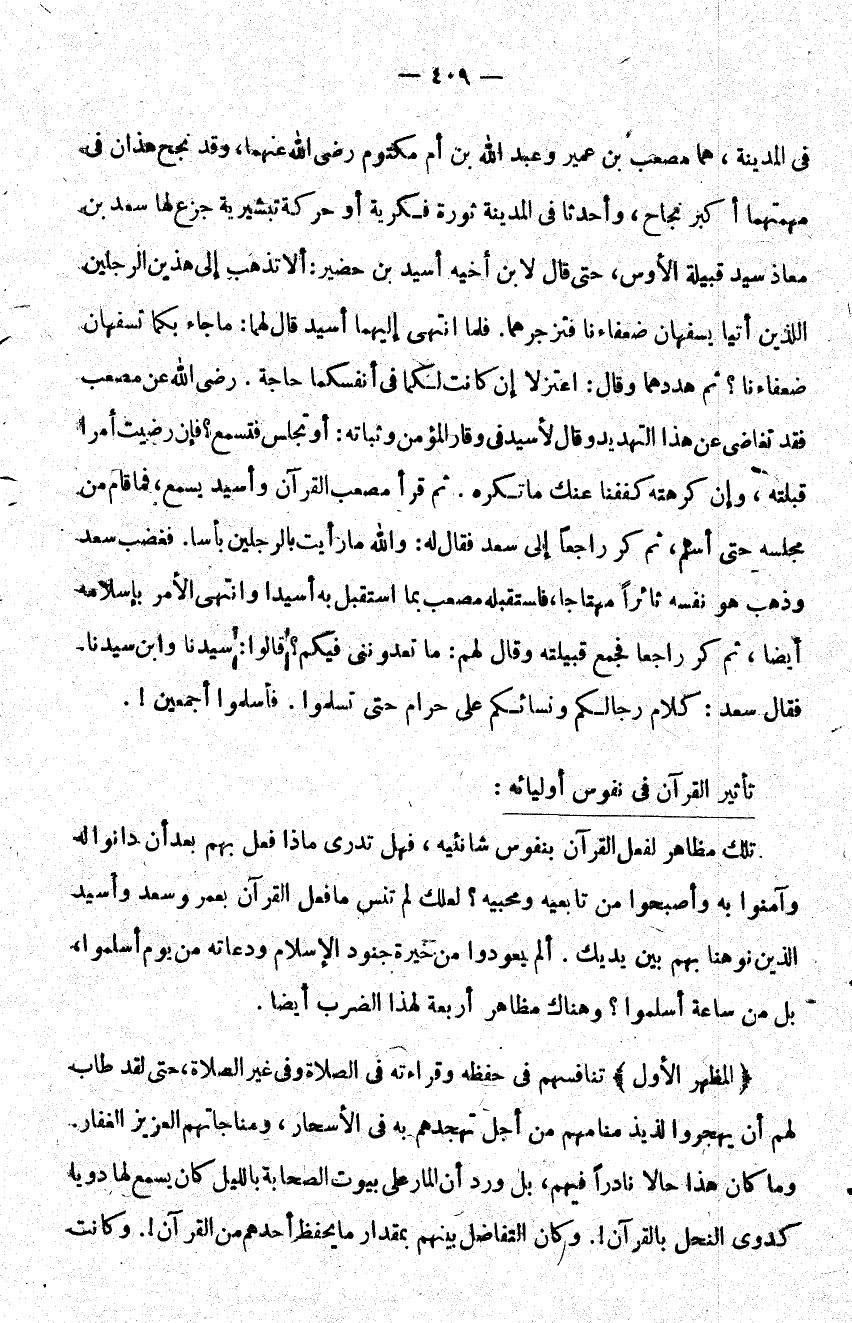 — ٤٠٩ —
فى المدينة ، هما مصعب بن عمير وعبد الله بن أم مكتوم رضى الله عنهما، وقد نجح هذان فى
مهمتهما أكبر نجاح، وأحدثا فى المدينة ثورة فكرية أو حركة تبشيرية جزع لها سعد بن
معاذ سيد قبيلة الأوس، حتى قال لابن أخيه أسيد بن حضير: ألا تذهب إلى هذين الرجلين
اللذين أتيا يسفهان ضعفاءنا فتزجرهما. فلما انتهى إليهما أسيد قال لهما: ماجاء بكما تسفهان
ضعفاءنا؟ ثم هددهما وقال: اعتزلا إن كانت لكما فى أنفسكما حاجة . رضى الله عن مصعب
فقد تغاضى عن هذا التهديد وقال لأسيد فى وقار المؤمن وثباته: أو تجلس فتسمع؟ فإن رضيت أمرا
قبلته ، وإن كرهته كففنا عنك ماتكره . ثم قرأ مصعب القرآن وأسيد يسمع، فما قام من
مجلسه حتى أسلم، ثم كر راجعاً إلى سعد فقال له: والله مارأيت بالرجلين بأسا. فغضب سعد
وذهب هو نفسه ثائراً مهتاجا، فاستقبله مصعب بما استقبل به أسيدا وانتهى الأمر بإسلامه
أيضا ، ثم كر راجعا فجمع قبيلته وقال لهم: ما تعدوننى فيكم؟ قالوا: سيدنا وابن سيدنا.
فقال سعد : كلام رجالكم ونسائكم على حرام حتى تسلموا . فأسلموا أجمعين ! .
تأثير القرآن فى نفوس أوليائه :
تلك مظاهر لفعل القرآن بنفوس شانئيه ، فهل تدرى ماذا فعل بهم بعد أن دانوا له
وآمنوا به وأصبحوا من تابعيه ومحبيه ؟ لعلك لم تنس مافعل القرآن بعمر وسعد وأسيد
الذين نوهنا بهم بين يديك . ألم يعودوا من خيرة جنود الإسلام ودعاته من يوم أسلموا،
بل من ساعة أسلموا ؟ وهناك مظاهر أربعة لهذا الضرب أيضا .
﴿ المظهر الأول ﴾ تنافسهم فى حفظه وقراءته فى الصلاة وفى غير الصلاة، حتى لقد طاب
لهم أن يهجروا لذيذ منامهم من أجل تهجدهم به فى الأسحار ، ومناجاتهم العزيز الغفار.
وما كان هذا حالا نادراً فيهم، بل ورد أن المار على بيوت الصحابة بالليل كان يسمع لها دويا
كدوى النحل بالقرآن!. وكان التفاضل بينهم بمقدار مايحفظ أحدهم من القرآن!. وكانت